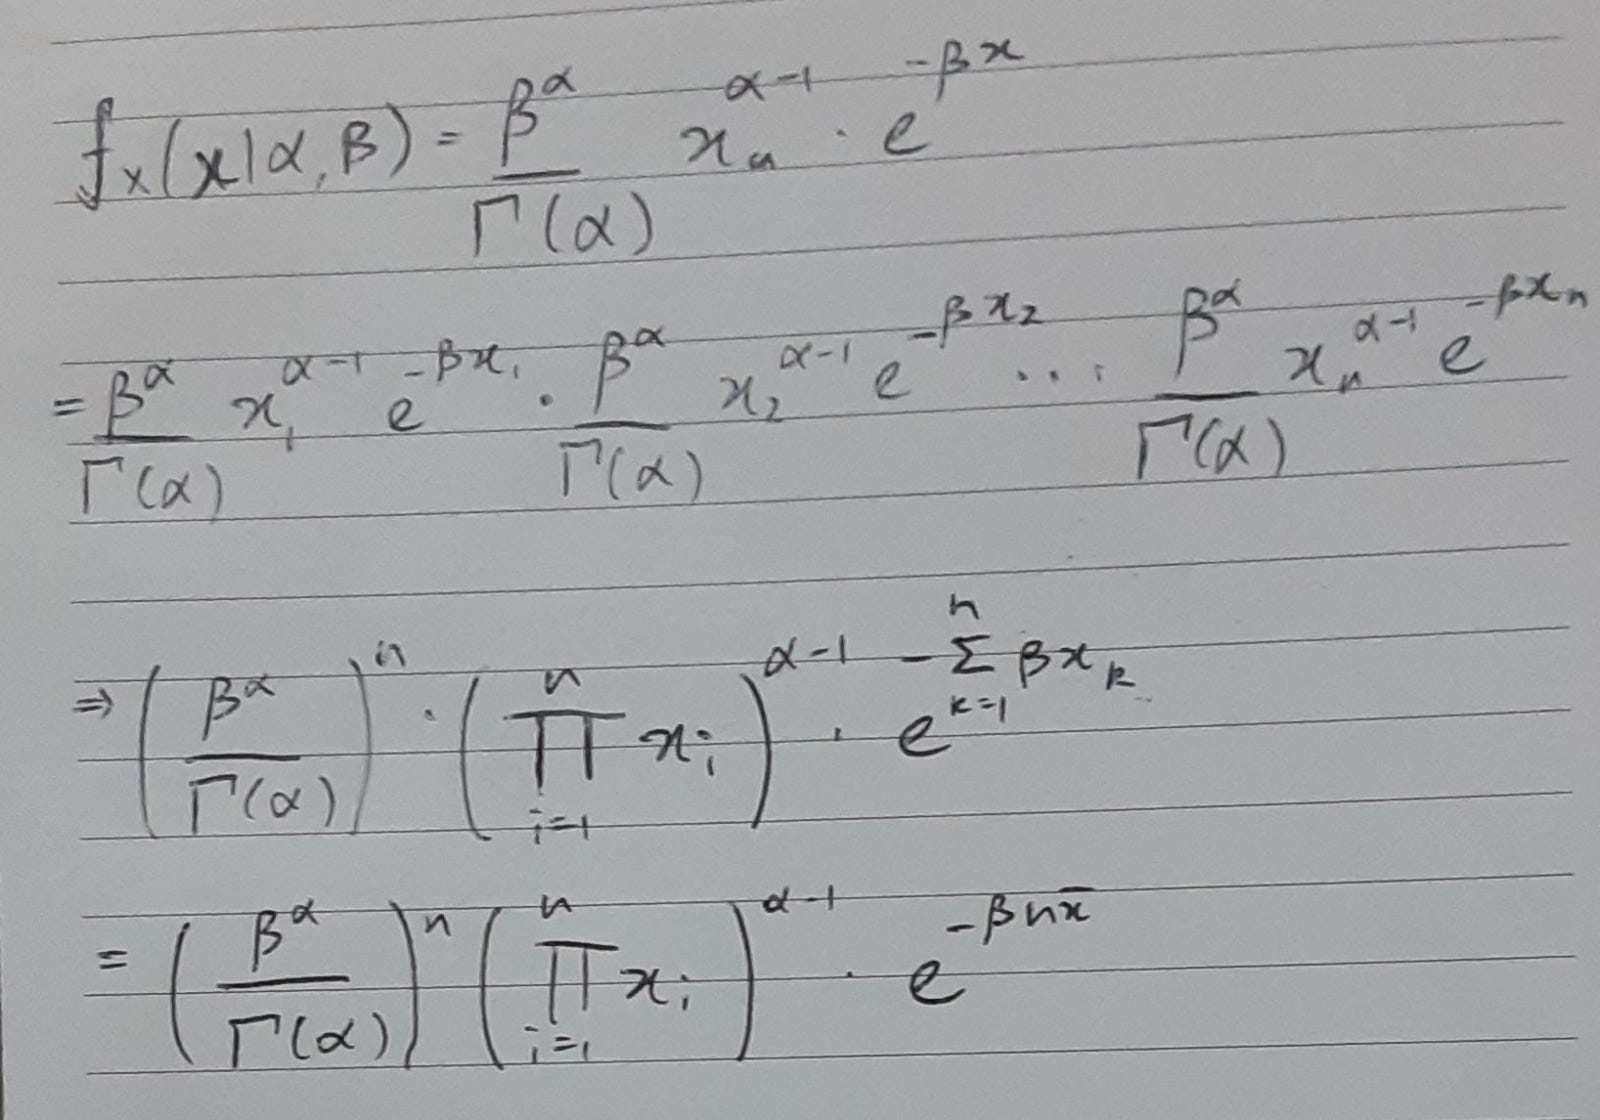 fₓ(x|α,β) = β^α / Γ(α) x_n^(α-1) · e^(-βx)
= β^α / Γ(α) x₁^(α-1) e^(-βx₁) · β^α / Γ(α) x₂^(α-1) e^(-βx₂) ... β^α / Γ(α) x_n^(α-1) e^(-βx_n)
⇒ (β^α / Γ(α))^n · (∏_{i=1}^{n} x_i)^(α-1) · e^(-∑_{k=1}^{n} βx_k)
= (β^α / Γ(α))^n (∏_{i=1}^{n} x_i)^(α-1) · e^(-βnx̄)